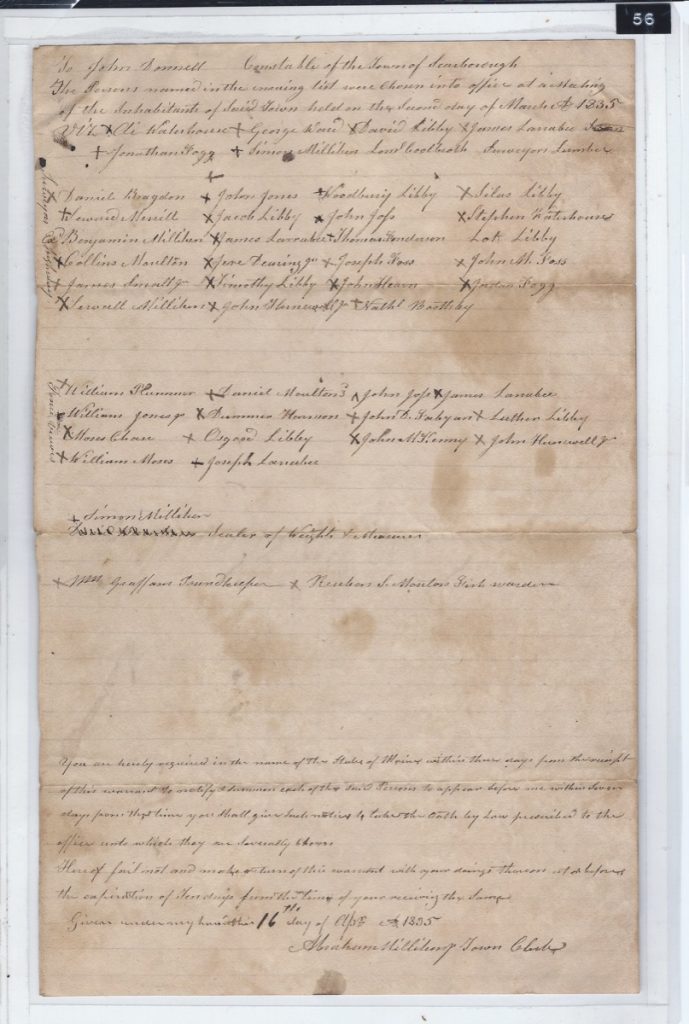 56
To John Donnell Constable of the Town of Scarborough
The Persons named in the ensuing list were Chosen into office at a Meeting
of the Inhabitants of Said Town held on the Second day of March A 1835
Viz X Eli Waterhouse + George Ward X David Libby X James Larrabee
+ Jonathan Fogg + Simon Milliken Surveyors Lumber
Daniel Bragdon + John Jones + Woodbury Libby X Silas Libby
X Seward Merrill X Jacob Libby X John Joss X Stephen Waterhouse
Benjamin Milliken X James Larrabee + Thomas Lot Libby
+ Collins Moulton + Jere Dearing Jr X Joseph Foss X John M. Foss
+ James Small Jr X Timothy Libby X John Hearn X Fogg
X Sewall Milliken X John Jr + Nathl
Surveyors of Highway
+ William Plummer + Daniel Moulton 3 John Joss X James Larrabee
William Jones Jr X Harmon + John D. Fabyan + Luther Libby
X Moses Chase + Osgood Libby X John McKenny X John Hunewell Jr
X William Moses + Joseph Larrabee
Fence Viewers
+ Simon Milliken
Sealer of Weights & Measures
+ Wm Graffam Poundkeeper X Reuben S. Moulton Fish warden
You are hereby required in the name of the State of Maine within three days from the receipt
of this warrant To notify & summon each of the Said Persons to appear before me within Seven
days from the time you Shall give Such notice to take the Oath by Law prescribed to the
office unto which they are Severally Chosen
Hereof fail not and make return of this warrant with your doings thereon at or before
the expiration of Ten days from the time of your receiving the Same
Given under my hand this 16th day of Apl A 1835
Abraham Milliken Town Clerk